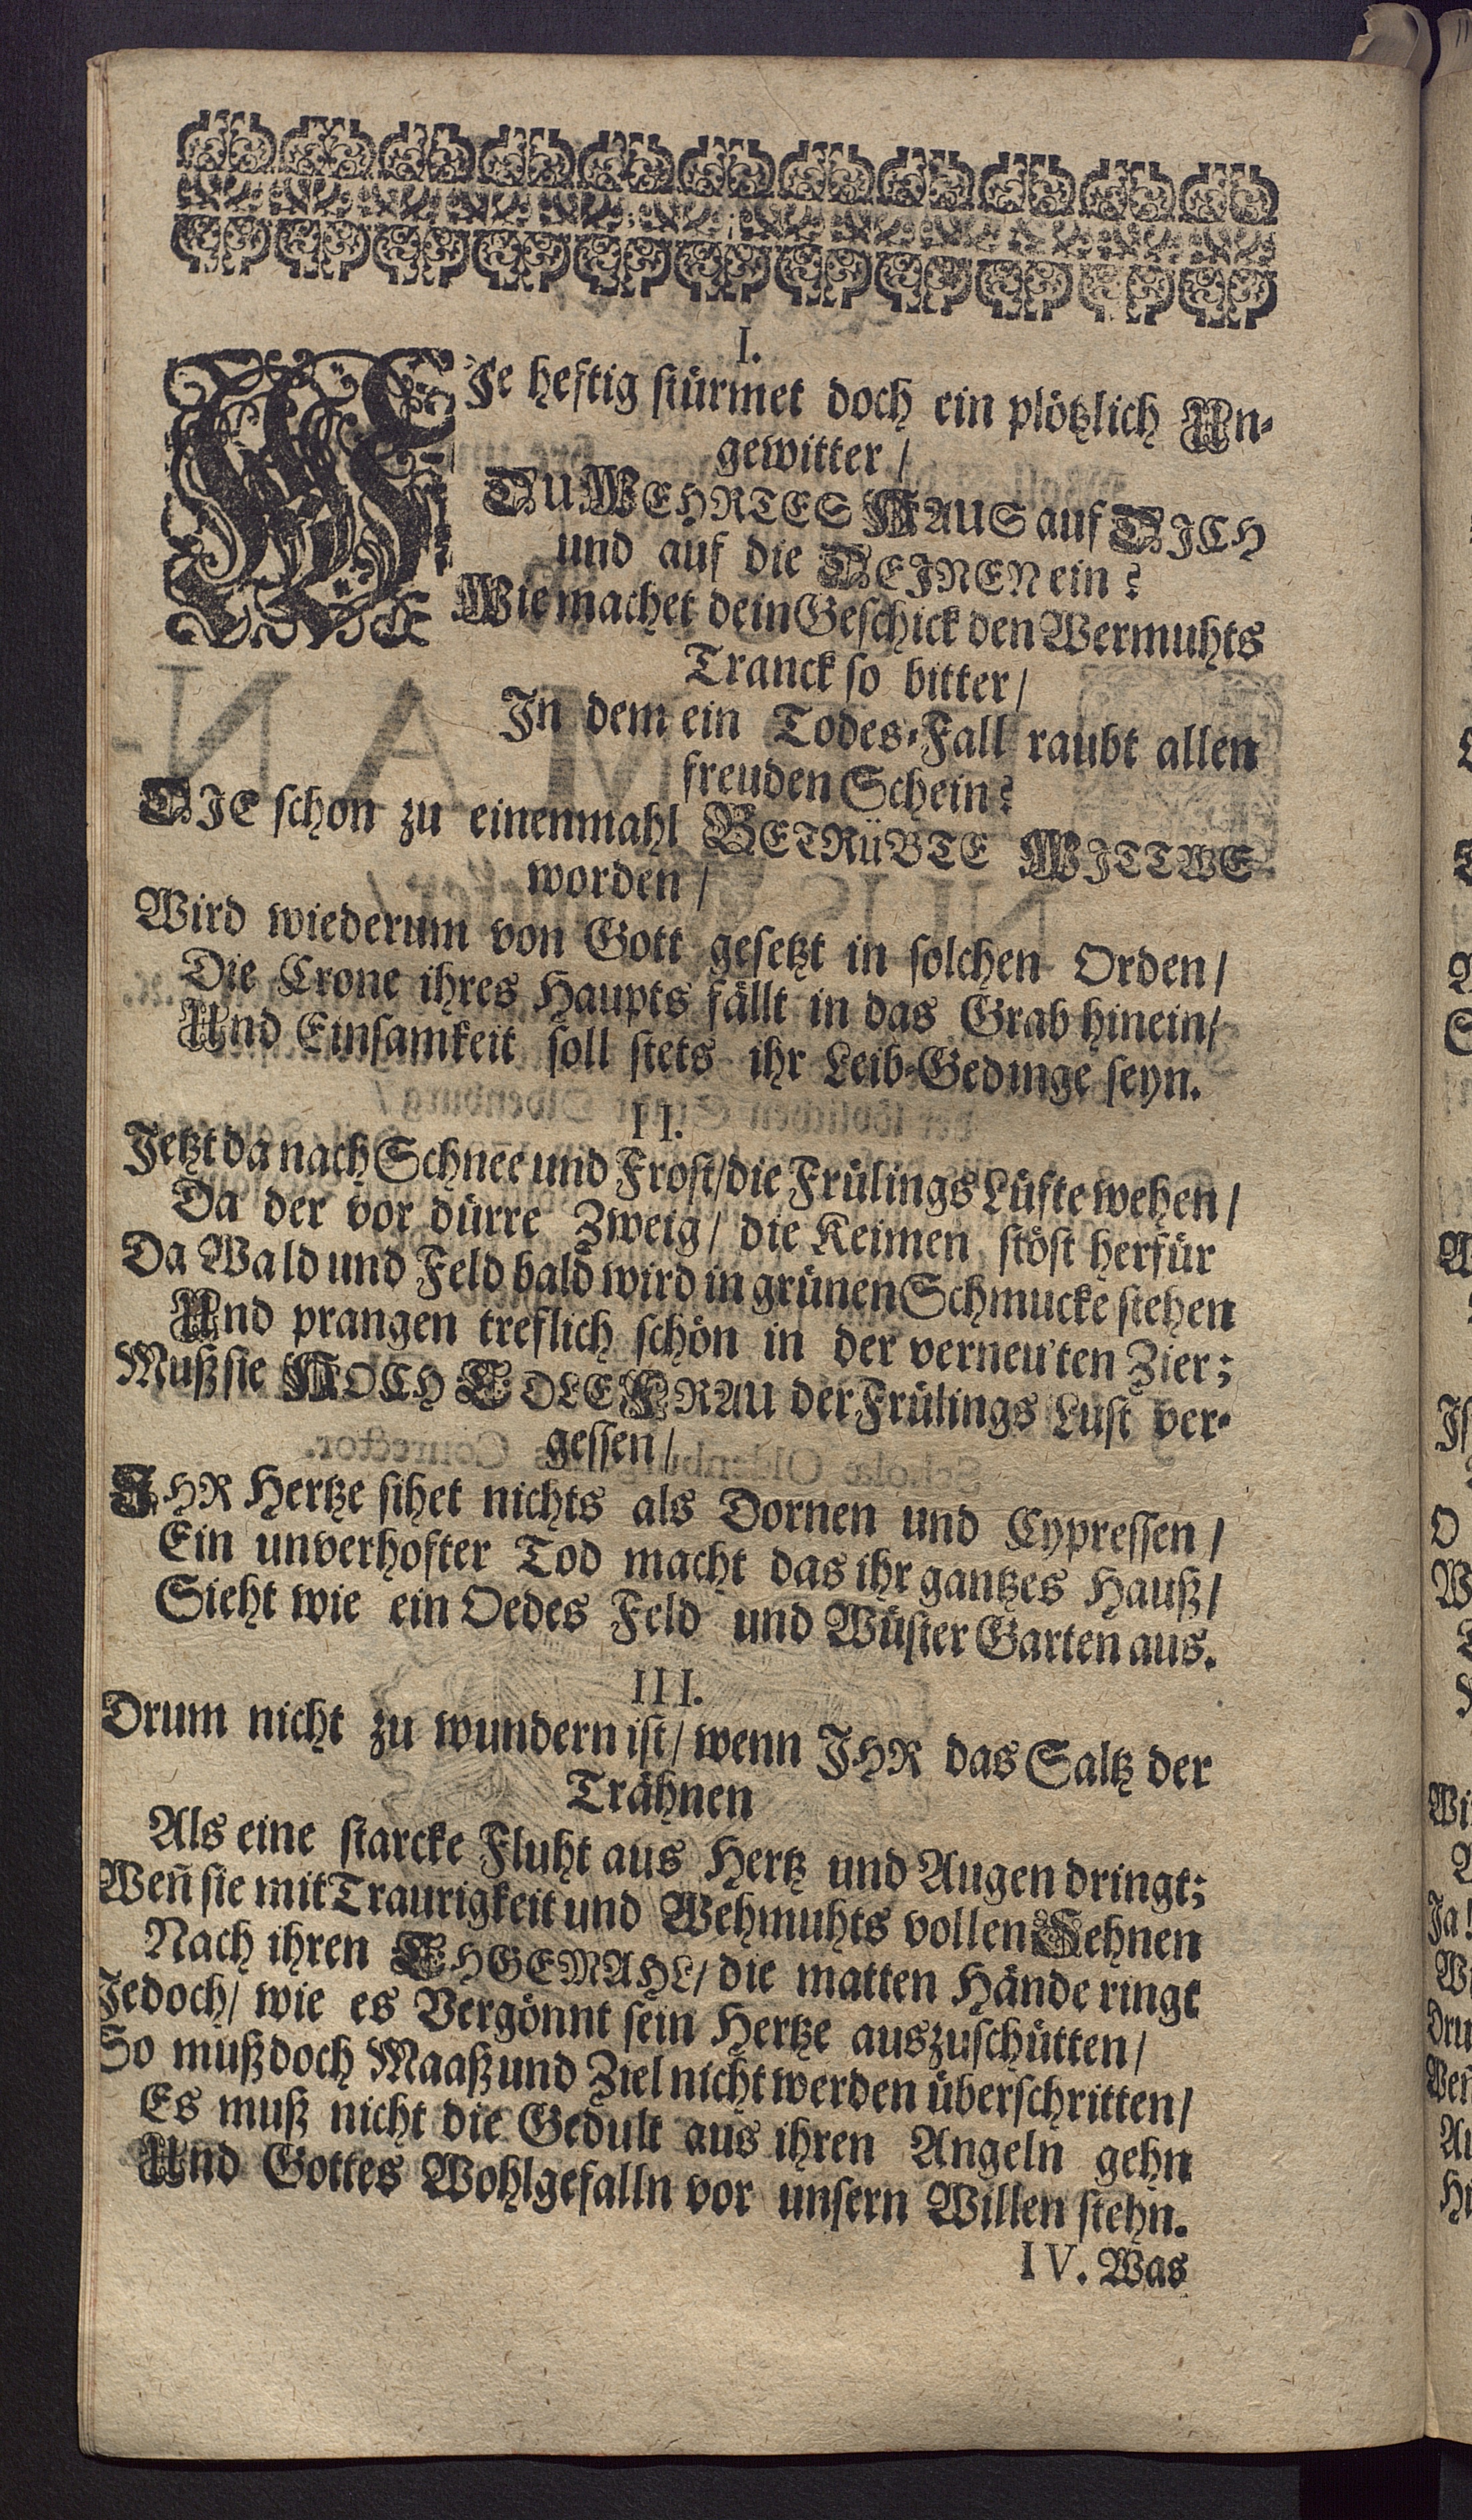 I.
WJe heftig stürmet doch ein plötzlich Un-
gewitter /
DU WEHRTES HAUS auf DJCH
und auf die DEJNEN ein?
Wie machet dein Geschick den Wermuhts
Tranck so bitter /
Jn dem ein Todes-Fall raubt allen
freuden Schein?
DJE schon zu einenmahl BETRüBTE WJTTWE
worden /
Wird wiederum von Gott gesetzt in solchen Orden /
Die Crone ihres Haupts fällt in das Grab hinein /
Und Einsamkeit soll stets ihr Leib-Gedinge seyn.
II.
Jetzt da nach Schnee und Frost / die Frülings Lüfte wehen /
Da der vor dürre Zweig / die Keimen stöst herfür
Da Wald und Feld bald wird in grünen Schmucke stehen
Und prangen treflich schön in der verneu'ten Zier;
Muß sie HOCH EDLE FRAU der Frülings Lust ver-
gessen /
JHR Hertze sihet nichts als Dornen und Cypressen /
Ein unverhofter Tod macht das ihr gantzes Hauß /
Sieht wie ein Oedes Feld und Wüster Garten aus.
III.
Drum nicht zu wundern ist / wenn JHR das Saltz der
Trähnen
Als eine starcke Fluht aus Hertz und Augen dringt;
Weñ sie mit Traurigkeit und Wehmuhts vollen Sehnen
Nach ihren EHGEMAHL / die matten Hände ringt
Jedoch / wie es Vergönnt sein Hertze auszuschütten /
So muß doch Maaß und Ziel nicht werden überschritten /
Es muß nicht die Gedult aus ihren Angeln gehn
Und Gottes Wohlgefalln vor unsern Willen stehn.
IV. Was